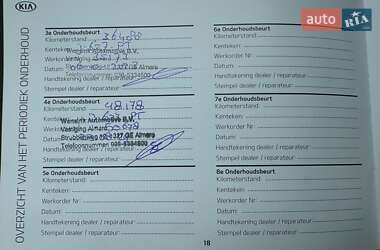 KIA
auto RIA .com
OVERZICHT VAN HET PERIODIEK ONDERHOUD
3e Onderhoudsbeurt
Kilometerstand:
Wensink Automotive B.V.
Kenteken:
Vestiging Almere
Werkorder Nr.
Datum
Telefoonnummer
Handtekening dealer / reparateur
Stempel dealer / reparateur
4e Onderhoudsbeurt
Kilometerstand: 48.178
Wensink Automotive B.V.
Kenteken:
Vestiging Almere
Werkorder
Datum
Telefoonnummer: 036-5384800
Handtekening dealer / reparateur
Stempel dealer / reparateur
5e Onderhoudsbeurt
Kilometerstand:
Kenteken:
Werkorder Nr.
Datum
Handtekening dealer / reparateur
Stempel dealer / reparateur
6e Onderhoudsbeurt
Kilometerstand:
Kenteken:
Werkorder Nr.
Datum
Handtekening dealer / reparateur
Stempel dealer / reparateur
7e Onderhoudsbeurt
Kilometerstand:
Kenteken:
Werkorder Nr.
Datum
Handtekening dealer / reparateur
Stempel dealer / reparateur
8e Onderhoudsbeurt
Kilometerstand:
Kenteken:
Werkorder Nr.
Datum
Handtekening dealer / reparateur
Stempel dealer / reparateur
18